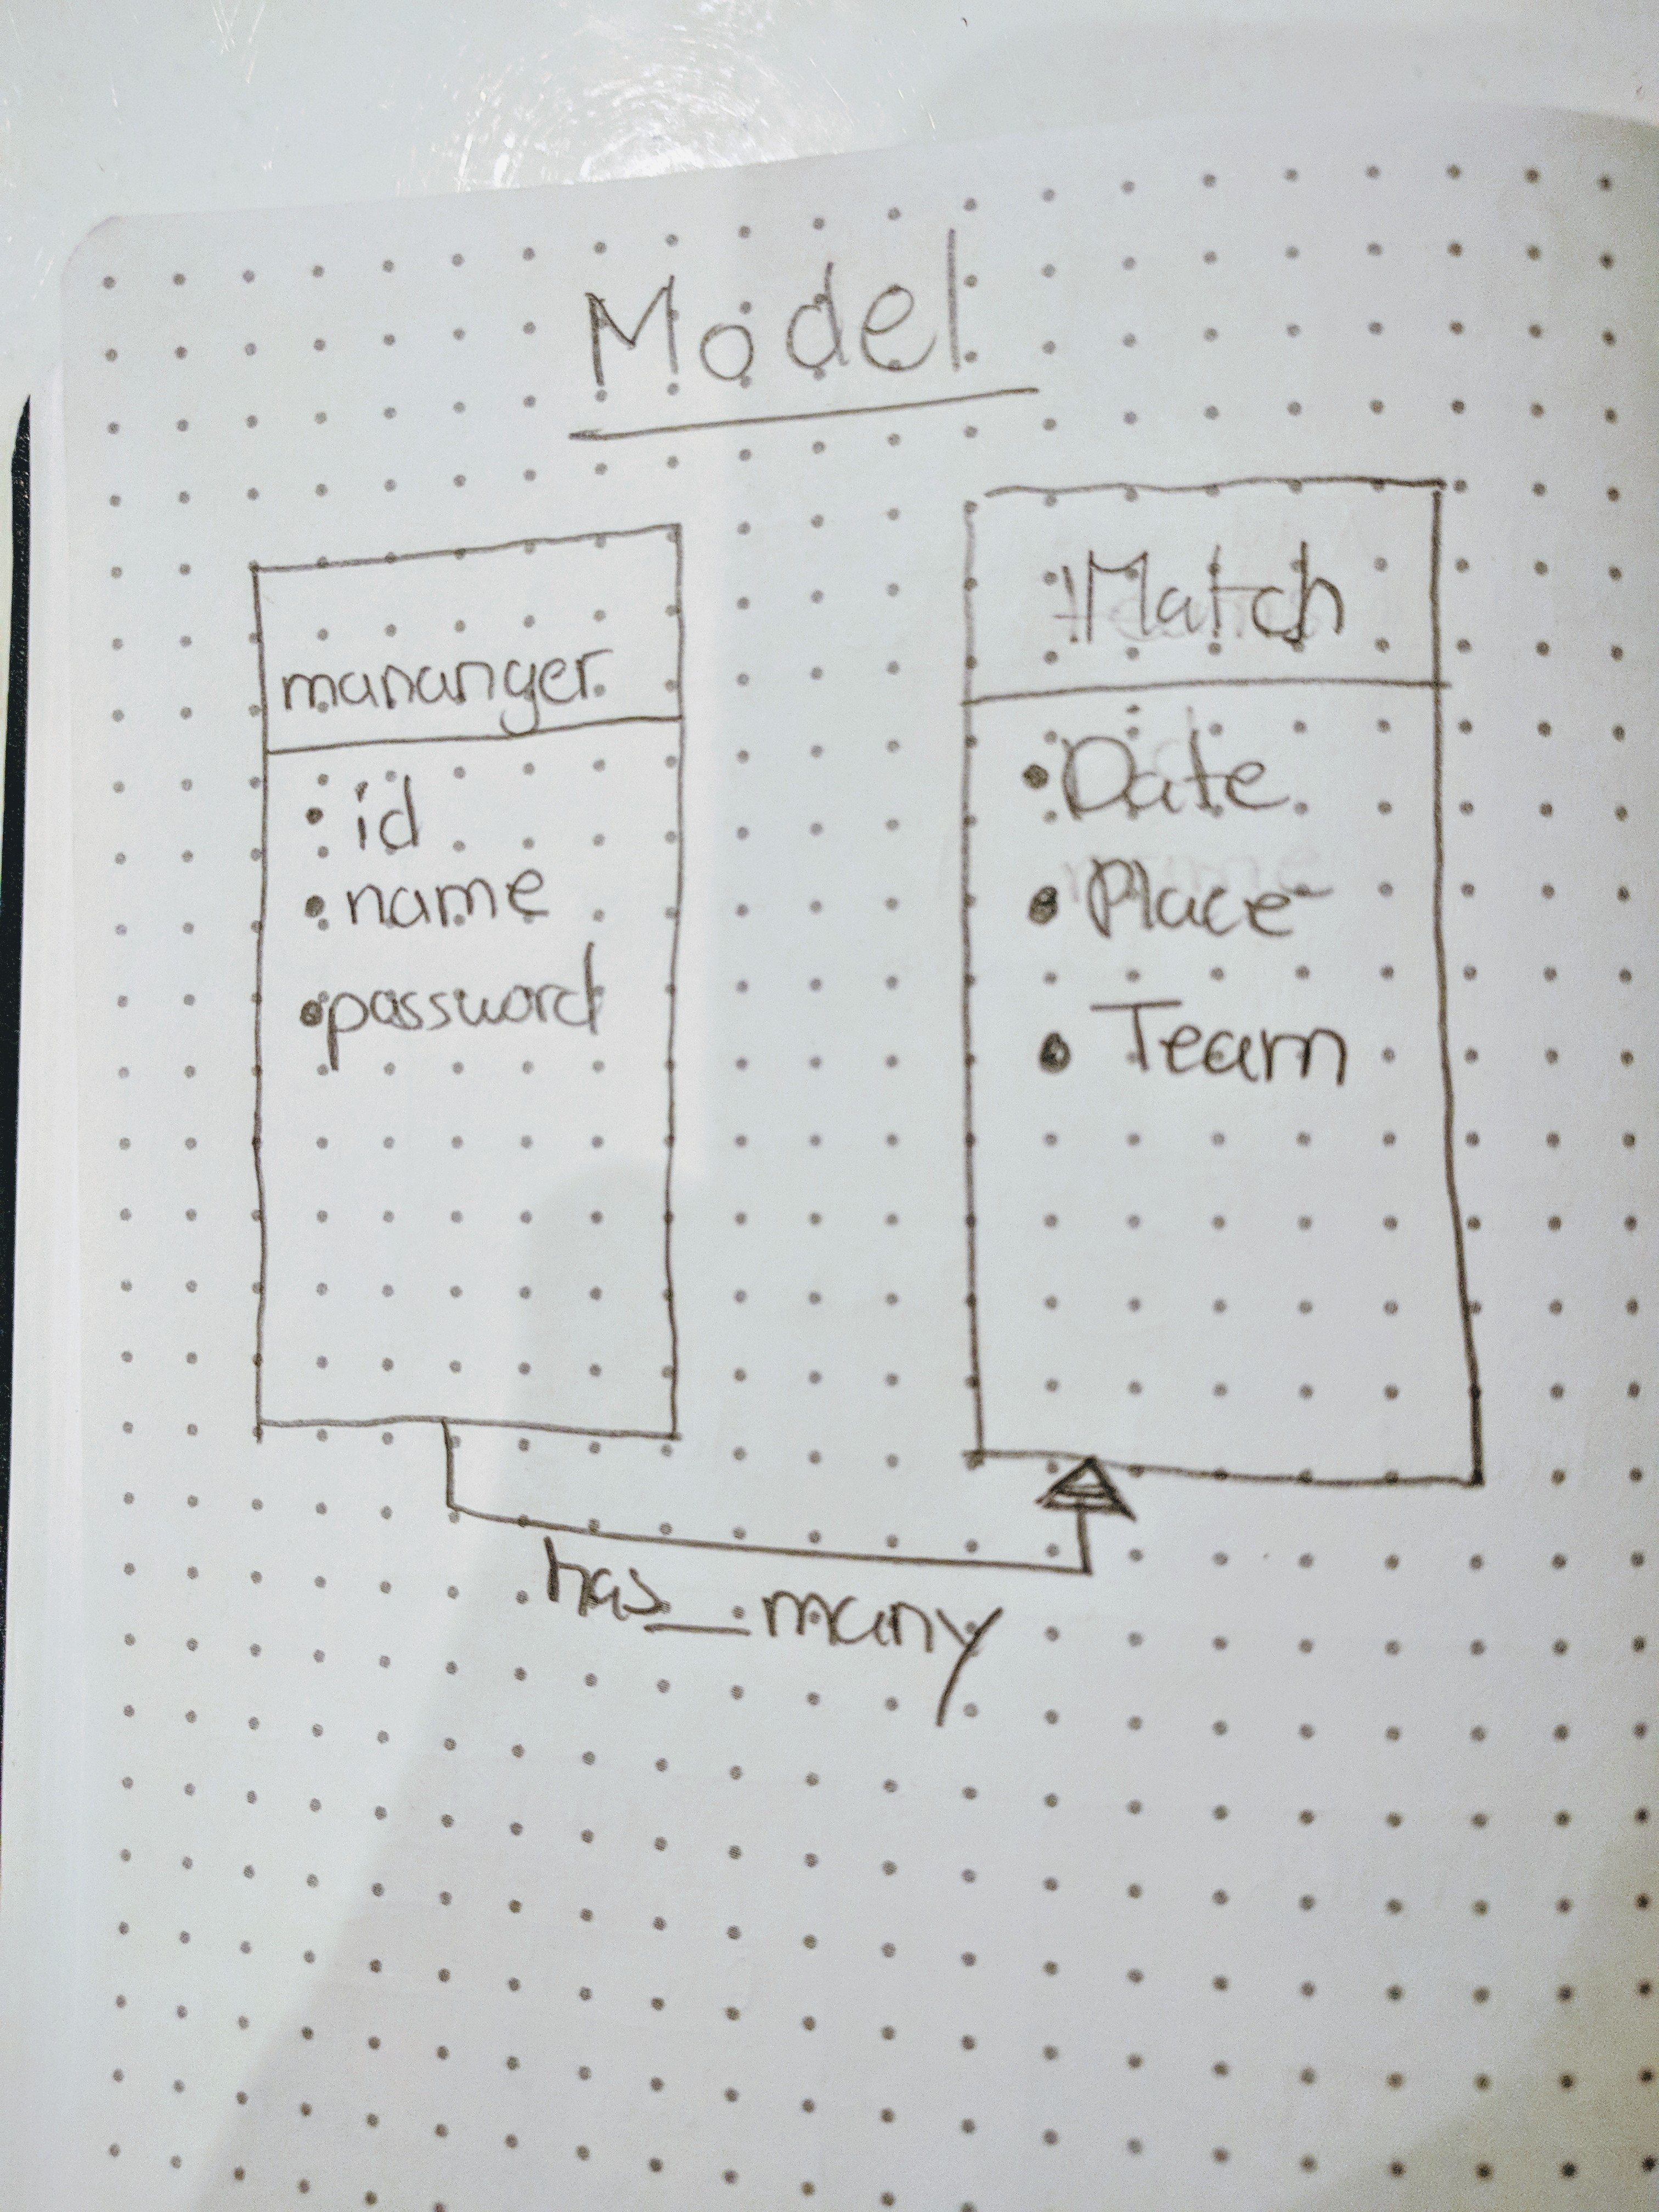 Model
mananger
• id
• name
• password
Match
• Date
• Place
• Team
has_many